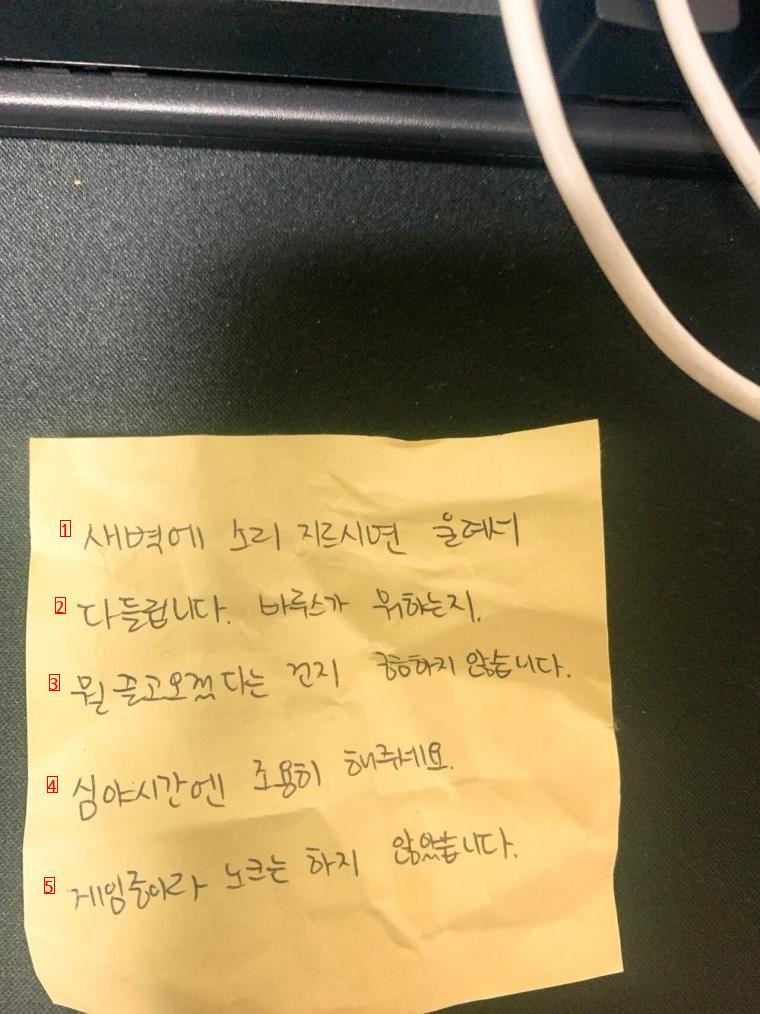 1 새벽에 소리 지르시면 울려서
2 다들립니다. 바루스가 뭐하는지,
3 뭘 끌고오겠다는 건지 궁금하지 않습니다.
4 심야시간엔 조용히 해주세요.
5 게임중이라 노크는 하지 않았습니다.